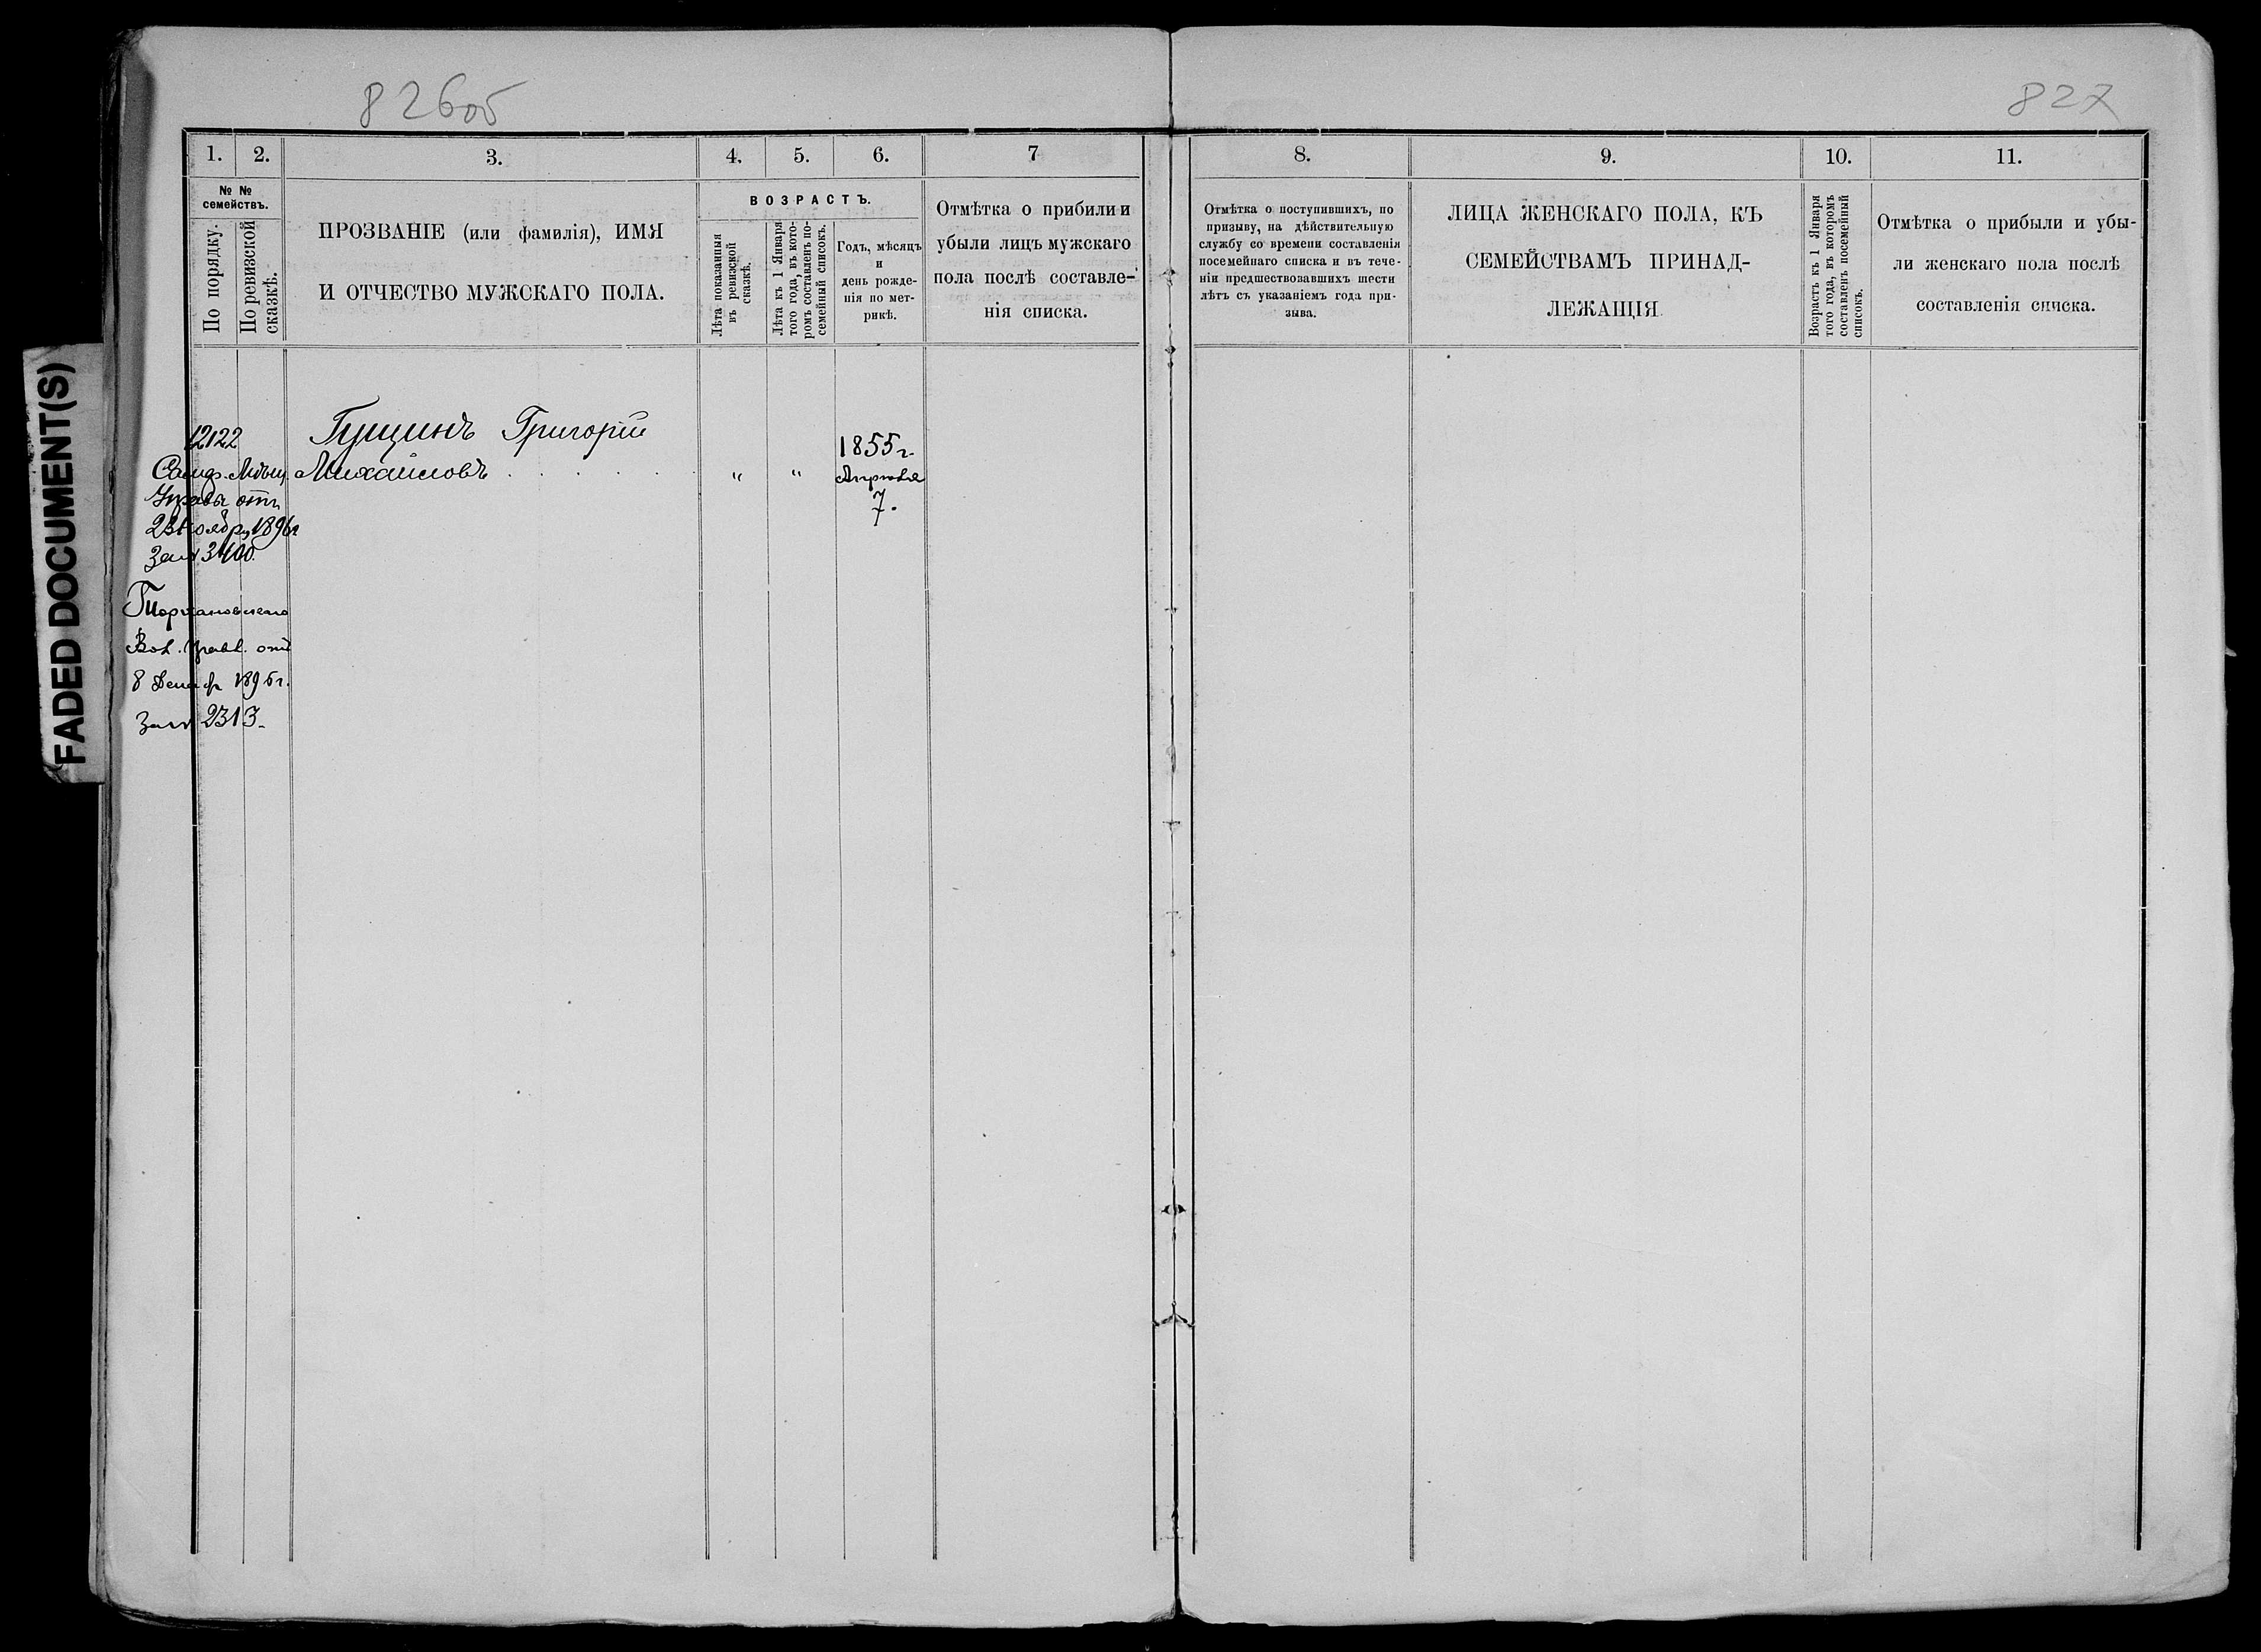 826об
827
1.
2.
3.
4.
5.
6.
7
8.
9.
10.
11.
№ №
семействъ.
По порядку.
По ревизской
сказкѣ.
ПРОЗВАНІЕ (или фамилія), ИМЯ
И ОТЧЕСТВО МУЖСКАГО ПОЛА.
ВОЗРАСТЪ.
Лѣта показанныя
въ ревизской
сказкѣ.
Лѣта къ 1 Января
того года, въ кото-
ромъ составленъ по-
семейный списокъ.
Годъ, мѣсяцъ
и
день рожде-
нія по мет-
рикѣ.
Отмѣтка о прибили и
убыли лицъ мужскаго
пола послѣ составле-
нія списка.
Отмѣтка о поступившихъ, по
призыву, на дѣйствительную
службу со времени составленія
посемейнаго списка и въ тече-
ніи предшествовавшихъ шести
лѣтъ съ указаніемъ года при-
зыва.
ЛИЦА ЖЕНСКАГО ПОЛА, КЪ
СЕМЕЙСТВАМЪ ПРИНАД-
ЛЕЖАЩІЯ
Возрастъ къ 1 Января
того года, въ которомъ
составленъ посемейный
списокъ.
Отмѣтка о прибыли и убы-
ли женскаго пола послѣ
составленія списка.
12122
Гущинъ Григорій
Михайловъ
" "
1855 г.
Апрѣля
7.
Управы отъ
23 Ноябр. 1896 г
за № 3400.
Вол. Правл. отъ
8 Декабр 1895 г.
за № 2313.
FADED DOCUMENT(S)